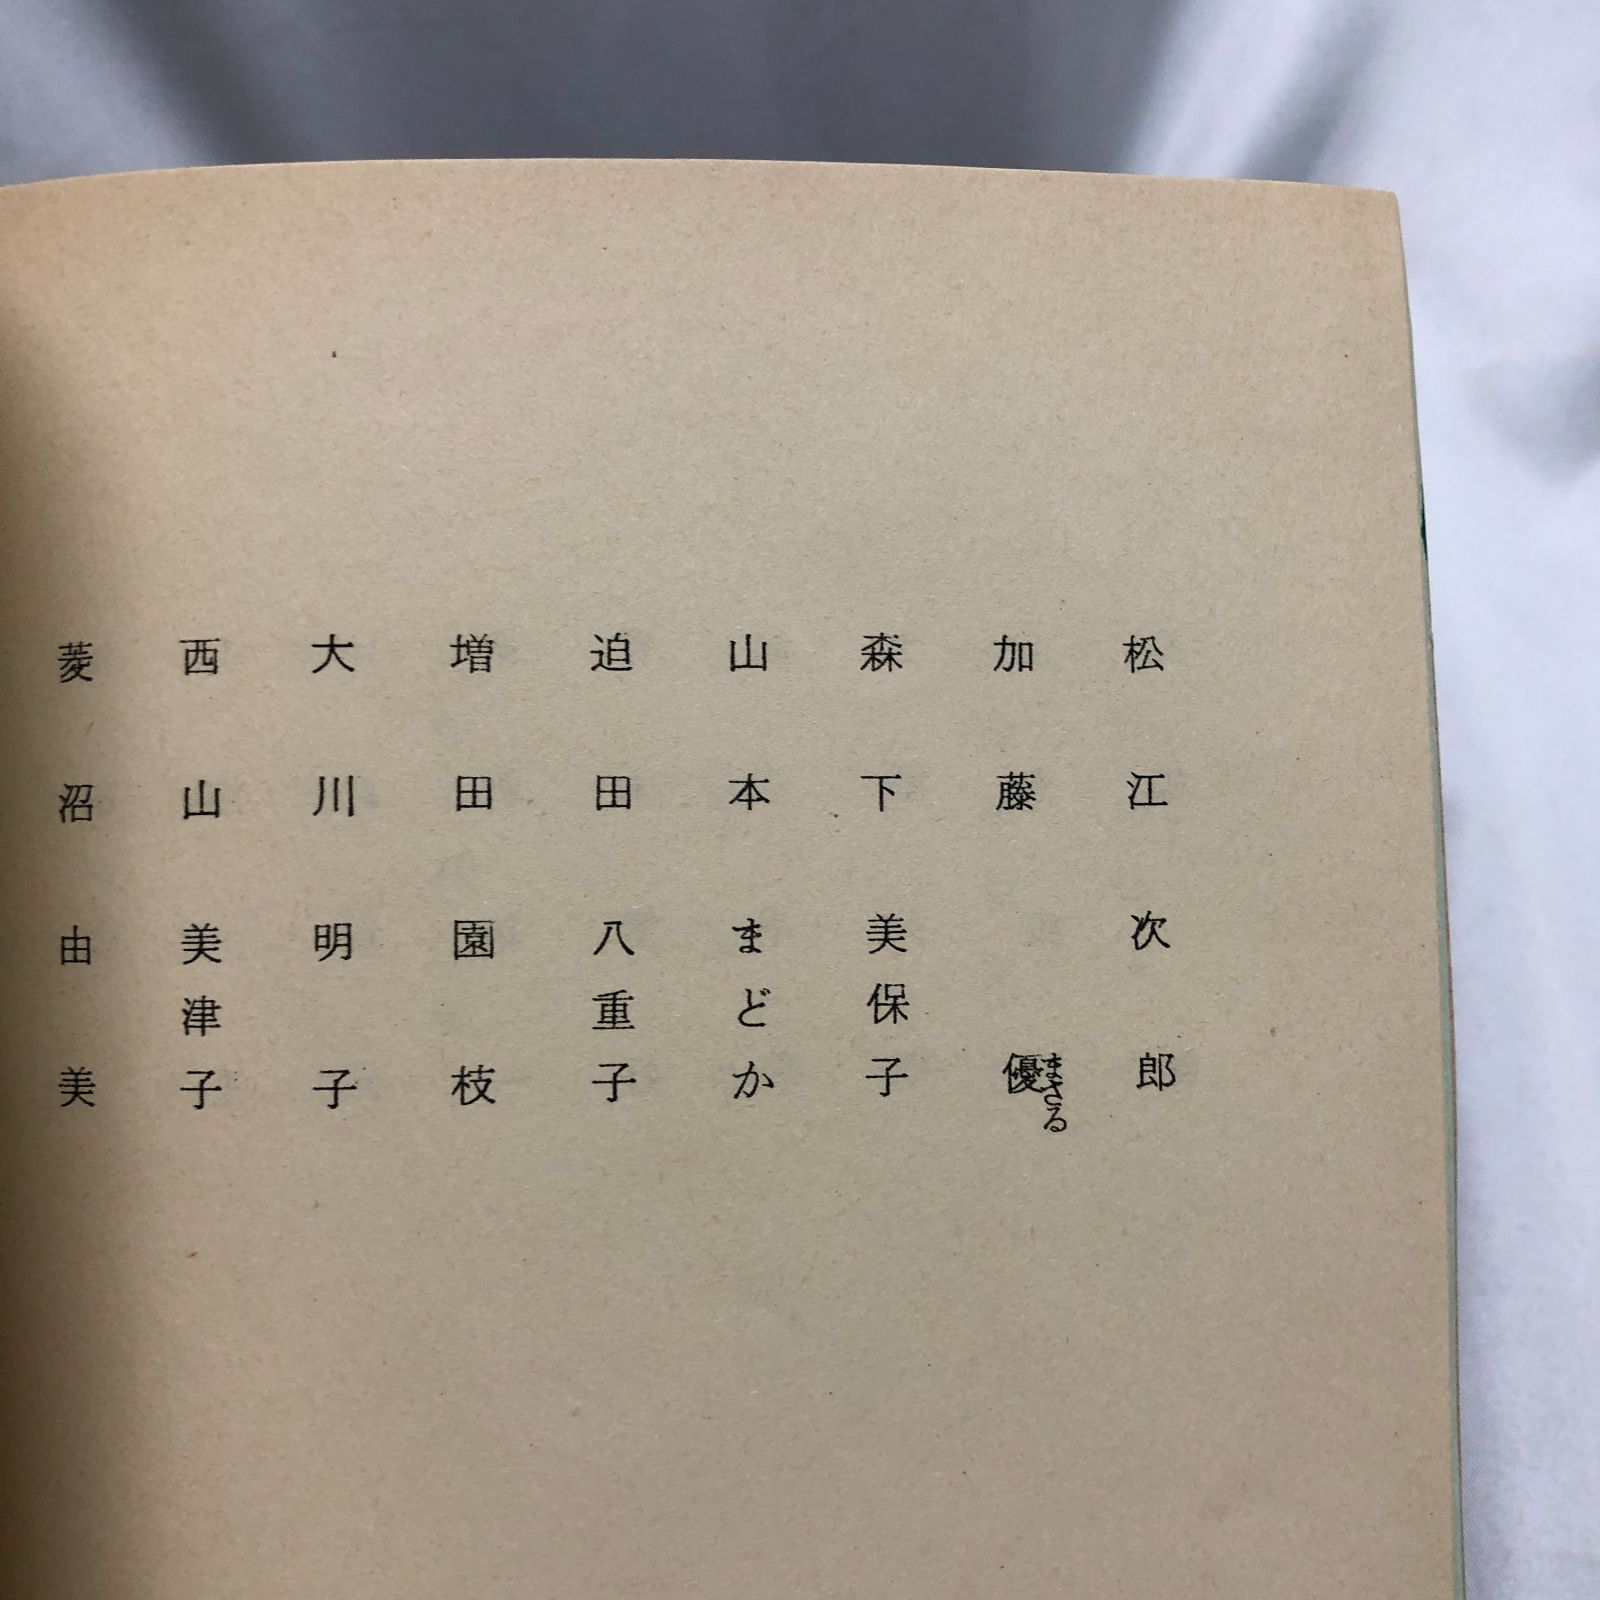 松江次郎
加藤優
まさる
森下美保子
山本まどか
迫田八重子
増田園枝
大川明子
西山美津子
菱沼由美